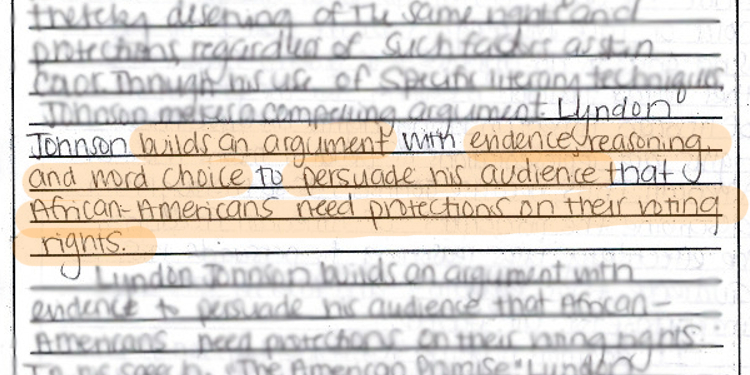 thereby deserving of the same rights and
protections regardless of such factors as skin
color. Through his use of specific literary techniques
Johnson makes a compelling argument. Lyndon
Johnson builds an argument with evidence, reasoning,
and word choice to persuade his audience that
African-Americans need protections on their voting
rights.
Lyndon Johnson builds an argument with
evidence to persuade his audience that African-
Americans need protections on their voting rights.
In his speech, "The American Promise" Lyndon